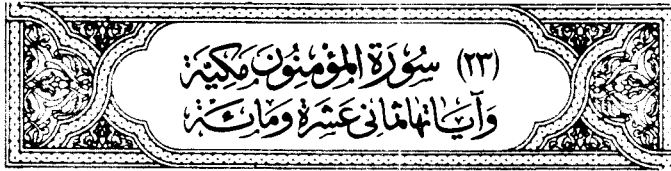 (٢٣) سُورَةُ المؤمِنُونَ مَكِيَّة
وَآيَاتهَا ثمَانى عَشرَة وَمائَة